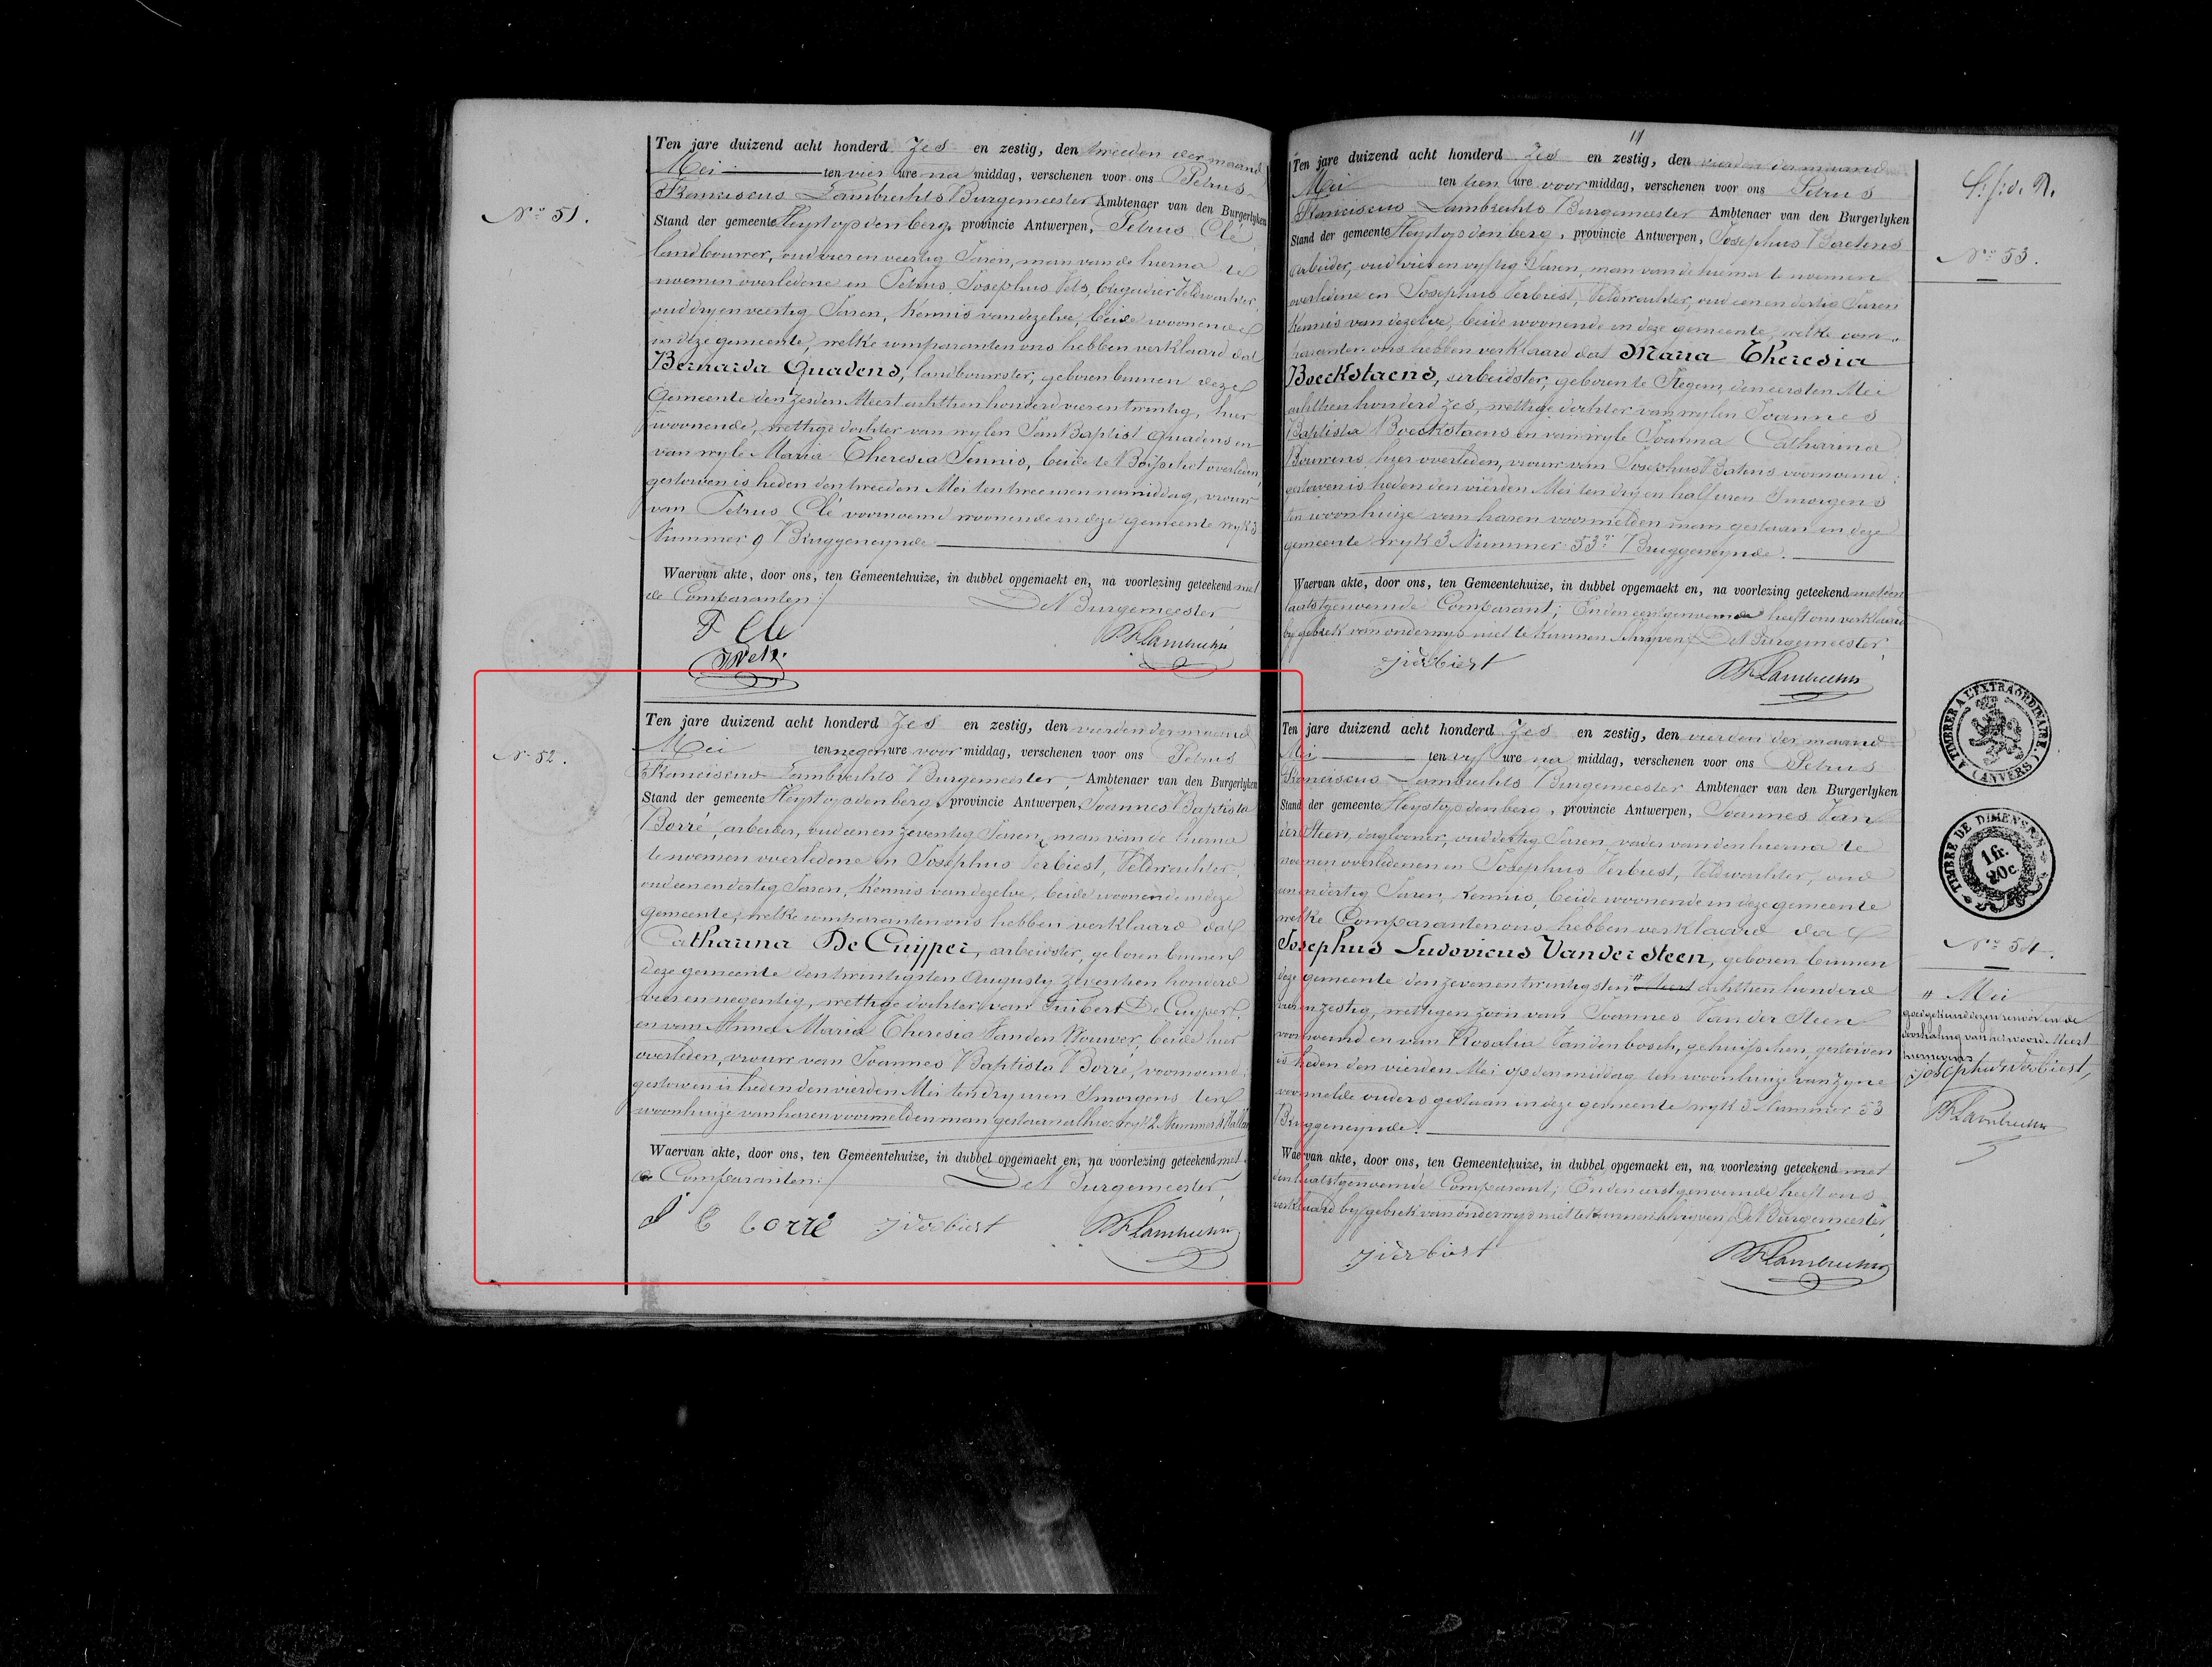 Nº 51.
Ten jare duizend acht honderd Zes en zestig, den tweeden der maand
Mei ten vier ure na middag, verschenen voor ons Petrus
Franciscus Lambrechts Burgemeester Ambtenaer van den Burgerlyken
Stand der gemeente Heyst op den berg, provincie Antwerpen, Petrus Clé
landbouwer, oud vier en veertig Jaren, man van de hierna te
noemen overledene en Petrus Josephus Vets, brigadier Veldwachter,
oud dry en veertig Jaren, Kennis van dezelve, beide woonende
in deze gemeente, welke comparanten ons hebben verklaard dat
Bernarda Quadens, landbouwster, geboren binnen deze
Gemeente den zesden Meert achttien honderd vier en twintig, hier
woonende, wettige dochter van wylen Jan Baptist Quadens en
van wyle Maria Theresia Sennis, beide te Boisschot overleden,
gestorven is heden den tweeden Mei ten twee uren namiddag, vrouw
van Petrus Clé voornoemd woonende in deze gemeente wyk 3
Nummer 9 Bruggeneynde
Waervan akte, door ons, ten Gemeentehuize, in dubbel opgemaekt en, na voorlezing geteekend met
de Comparanten:/ De Burgemeester
P Clé PF Lambrechts
JVets.
Nº 52.
Ten jare duizend acht honderd Zes en zestig, den vierden der maand
Mei ten negen ure voor middag, verschenen voor ons Petrus
Franciscus Lambrechts Burgemeester, Ambtenaer van den Burgerlyken
Stand der gemeente Heyst op den berg, provincie Antwerpen, Joannes Baptista
Borré, arbeider, oud een en zeventig Jaren, man van de hierna
te noemen overledene en Josephus Verbiest, Veldwachter,
oud een en dertig Jaren, Kennis van dezelve, beide woonende in deze
gemeente, welke comparanten ons hebben verklaard dat
Catharina De Cuyper, arbeidster, geboren binnen
deze gemeente den twintigsten Augusty zeventien honderd
vier en negentig, wettige dochter van Guibert De Cuyper
en van Anna Maria Theresia Vanden Wouwer, beide hier
overleden, vrouw van Joannes Baptista Borré, voornoemd;
gestorven is heden den vierden Mei ten dry uren Smorgens ten
woonhuize van haren voormelden man gestaan alhier wyk 2 Nummer
Waervan akte, door ons, ten Gemeentehuize, in dubbel opgemaekt en, na voorlezing geteekend met
de Comparanten:/ De Burgemeester,
J B borré jverbiest PF Lambrechts
11
Ten jare duizend acht honderd Zes en zestig, den vierden der maand
Mei ten tien ure voor middag, verschenen voor ons Petrus
Franciscus Lambrechts Burgemeester Ambtenaer van den Burgerlyken
Stand der gemeente Heyst op den berg, provincie Antwerpen, Josephus Baetens
arbeider, oud vier en vyftig Jaren, man van de hierna te noemen
overledene en Josephus Verbiest, Veldwachter, oud een en dertig Jaren
Kennis van dezelve, beide woonende in deze gemeente, welke com-
paranten ons hebben verklaard dat Maria Theresia
Boeckstaens, arbeidster, geboren te Itegem, den eersten Mei
achttien honderd zes, wettige dochter van wylen Joannes
Baptista Boeckstaens en van wyle Joanna Catharina
Bouwens, hier overleden, vrouw van Josephus Batens voornoemd;
gestorven is heden den vierden Mei ten dry en half uren Smorgens
ten woonhuize van haren voormelden man gestaan in deze
gemeente wyk 3 Nummer 53 Bruggeneynde.
Waervan akte, door ons, ten Gemeentehuize, in dubbel opgemaekt en, na voorlezing geteekend met den
laatstgenoemde Comparant; En den eerstgenoemde heeft ons verklaard
by gebrek van onderwys niet te kunnen schryven:/ De Burgemeester,
jverbiest PF Lambrechts
Nº 53.
Ten jare duizend acht honderd Zes en zestig, den vierden der maand
Mei ten vyf ure na middag, verschenen voor ons Petrus
Franciscus Lambrechts Burgemeester Ambtenaer van den Burgerlyken
Stand der gemeente Heyst op den berg, provincie Antwerpen, Joannes Van
der Steen, daglooner, oud dertig Jaren, vader van den hierna te
noemen overledenen en Josephus Verbiest, Veldwachter, oud
een en dertig Jaren, Kennis, beide woonende in deze gemeente
welke Comparanten ons hebben verklaard dat
Josephus Ludovicus Vander steen, geboren binnen
deze gemeente den zeven en twintigsten # Meert achttien honderd
vier en zestig, wettigen zoon van Joannes Van der Steen
voornoemd en van Rosalia Vandenbosch, gehuisschen, gestorven
is heden den vierden Mei op den middag ten woonhuize van zyne
voormelde ouders gestaan in deze gemeente wyk 3 Nummer 53
Bruggeneynde.
Waervan akte, door ons, ten Gemeentehuize, in dubbel opgemaekt en, na voorlezing geteekend met
den laatstgenoemde Comparant; En den eerstgenoemde heeft ons
verklaard by gebrek van onderwys niet te kunnen schryven, De Burgemeester
jverbiest PF Lambrechts
A TIMBRER A L'EXTRAORDINAIRE. (ANVERS)
TIMBRE DE DIMENSION
1 fr. 20 c
Nº 54.
# Mei
goedgekeurd dezen renvoi en de
doorhaling van het woord Meert
hiernevens
josephus verbiest,
PF Lambrechts